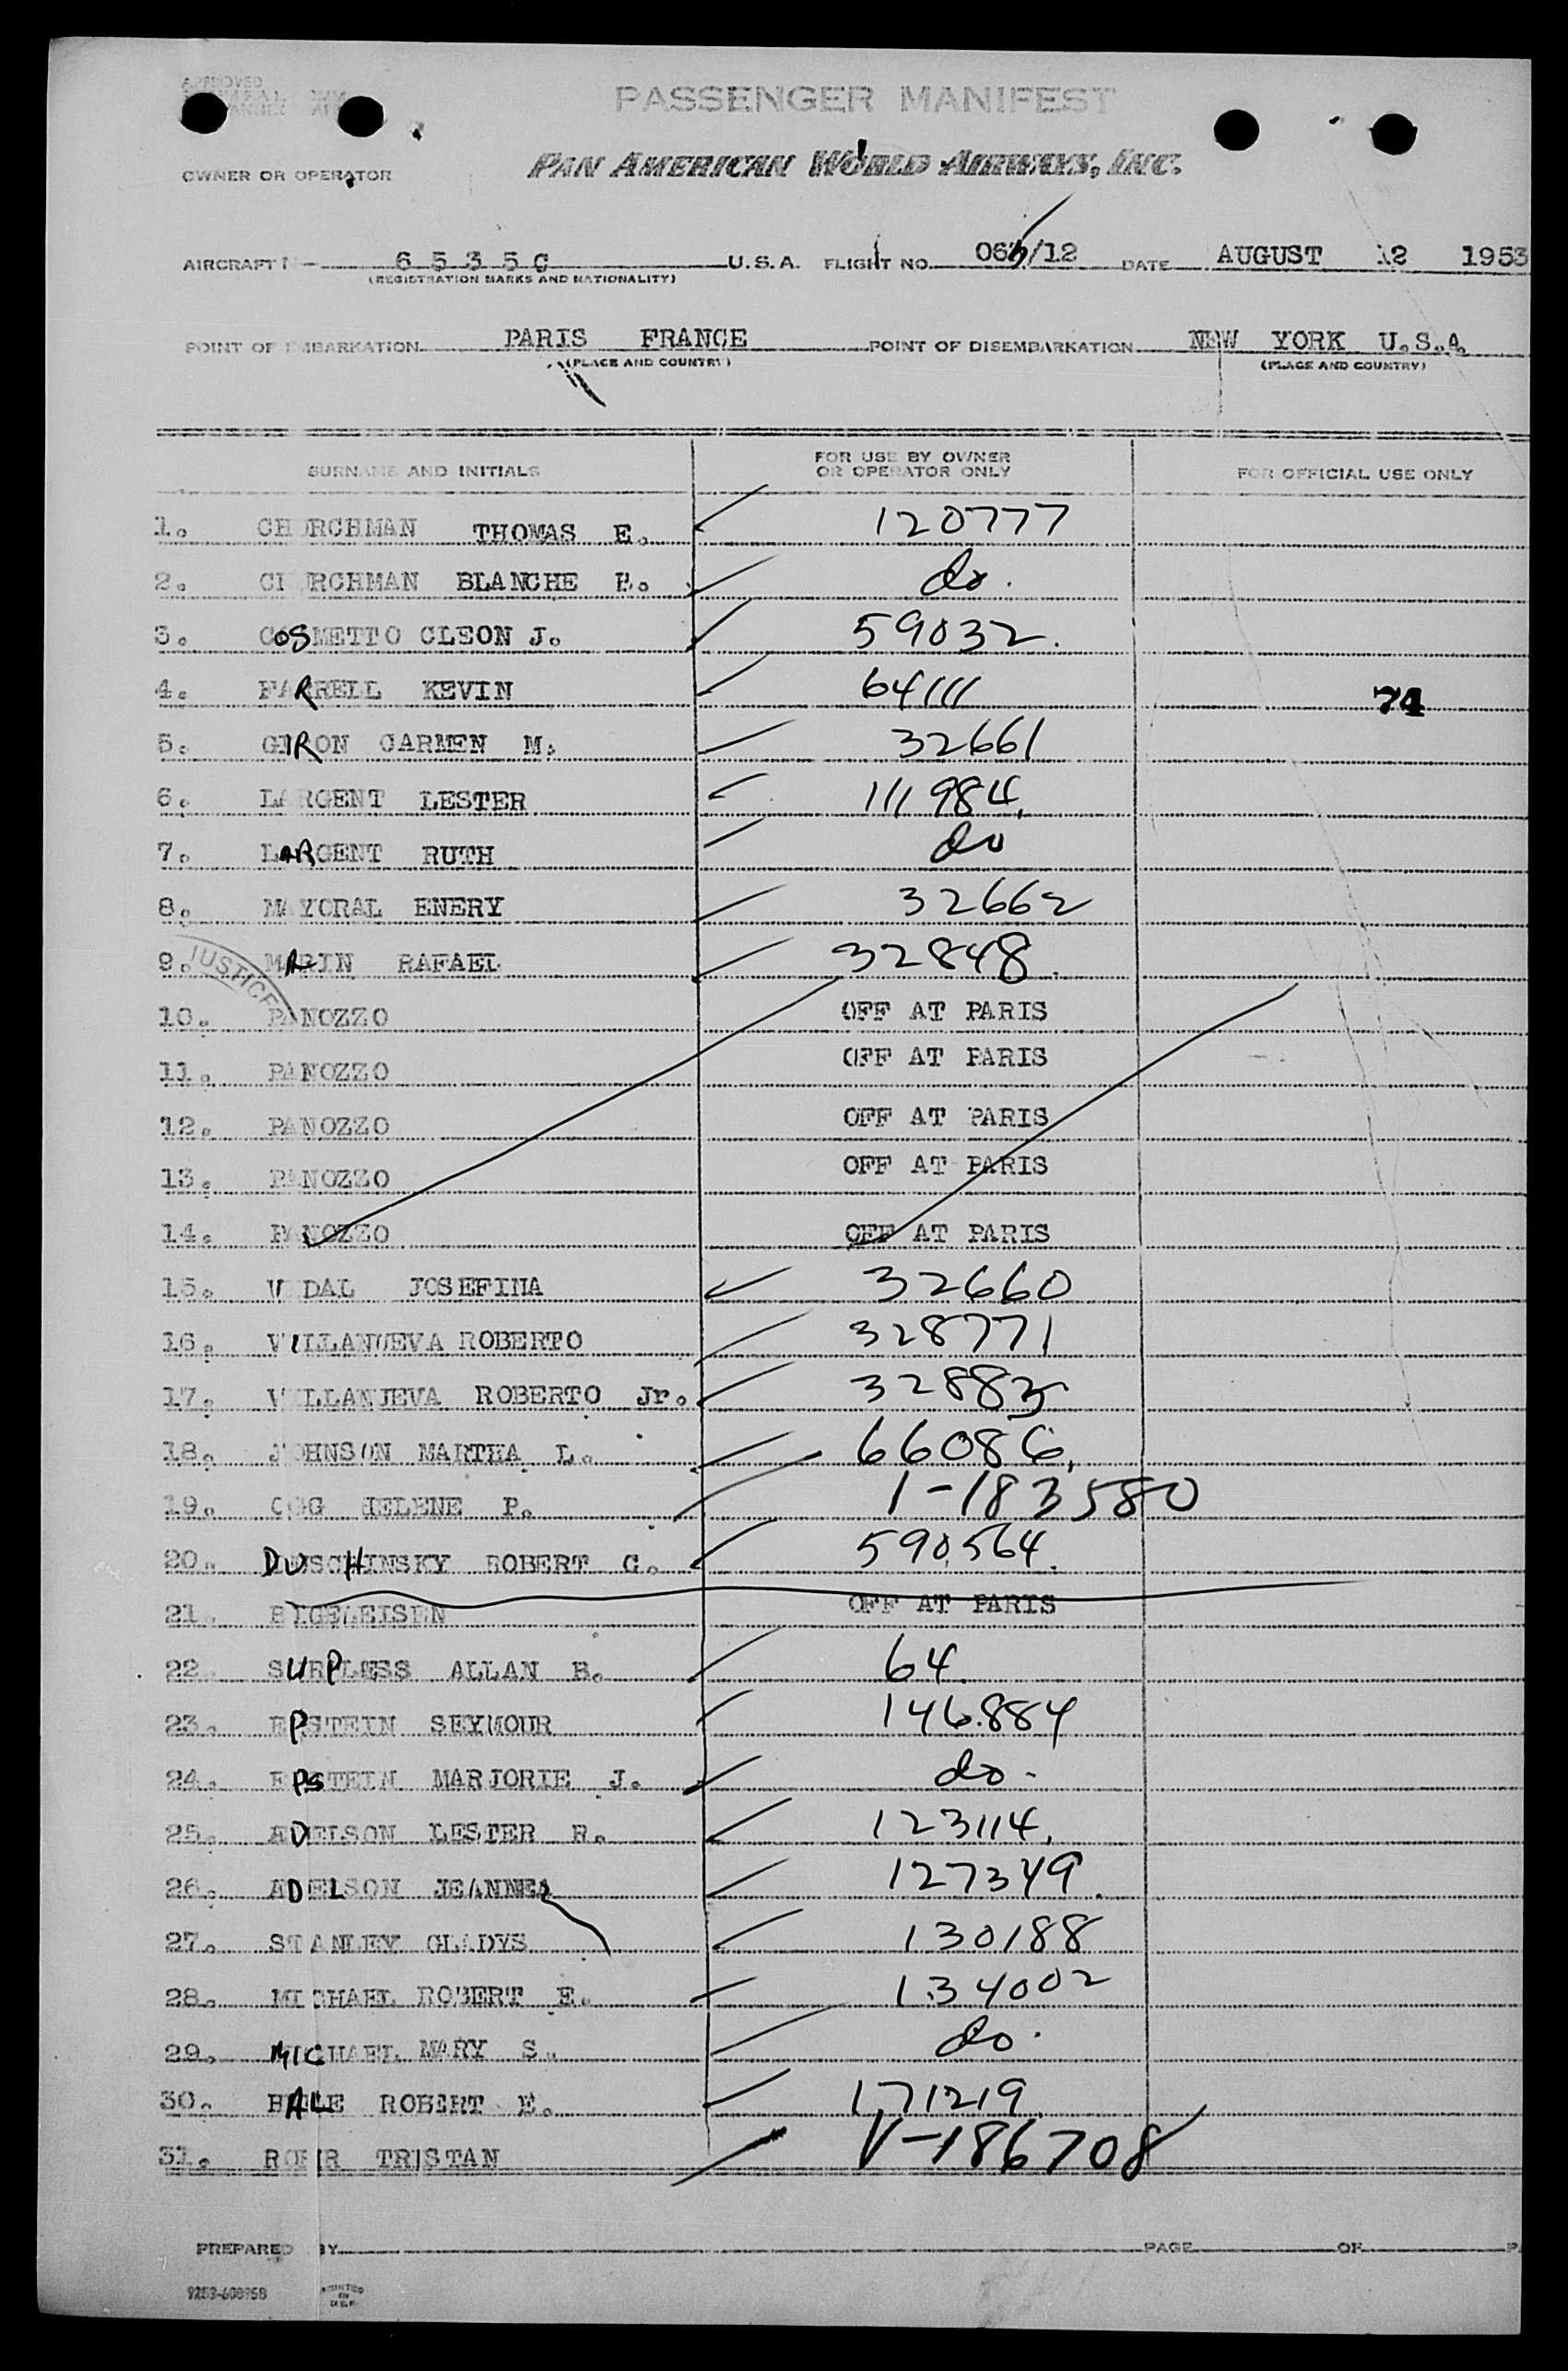 APPROVED
PASSENGER MANIFEST
PAN AMERICAN WORLD AIRWAYS, INC.
OWNER OR OPERATOR
AIRCRAFT N- 6535C U.S.A. FLIGHT NO. 063/12 DATE AUGUST 12 1953
(REGISTRATION MARKS AND NATIONALITY)
POINT OF EMBARKATION PARIS FRANCE POINT OF DISEMBARKATION NEW YORK U.S.A.
(PLACE AND COUNTRY) (PLACE AND COUNTRY)
SURNAME AND INITIALS FOR USE BY OWNER OR OPERATOR ONLY FOR OFFICIAL USE ONLY
1. CHURCHMAN THOMAS E. 120777
2. CHURCHMAN BLANCHE H. do.
3. COSMETTO CLEON J. 59032.
4. FARRELL KEVIN 64111 74
5. GIRON CARMEN M. 32661
6. LARGENT LESTER 111984.
7. LARGENT RUTH do
8. MAYORAL ENERY 32662
9. MARIN RAFAEL 32848.
JUSTICE
10. PANOZZO OFF AT PARIS
11. PANOZZO OFF AT PARIS
12. PANOZZO OFF AT PARIS
13. PANOZZO OFF AT PARIS
14. PANOZZO OFF AT PARIS
15. VIDAL JOSEFINA 32660
16. VILLANUEVA ROBERTO 328771
17. VILLANUEVA ROBERTO Jr. 32883
18. JOHNSON MARTHA L. 66086.
19. HELENE P. 1-183580
20. DUSCHINSKY ROBERT G. 590564.
21. BIGELEISEN OFF AT PARIS
22. SURPLESS ALLAN B. 64
23. EPSTEIN SEYMOUR 146.884
24. EPSTEIN MARJORIE J. do.
25. ADELSON LESTER R. 123114.
26. ADELSON JEANNEA 127349.
27. STANLEY GLADYS 130188
28. MICHAEL ROBERT E. 134002
29. MICHAEL MARY S. do.
30. HALE ROBERT E. 171219
31. TRISTAN V-186708
PREPARED BY PAGE OF
9253-608958 PRINTED IN U.S.A.